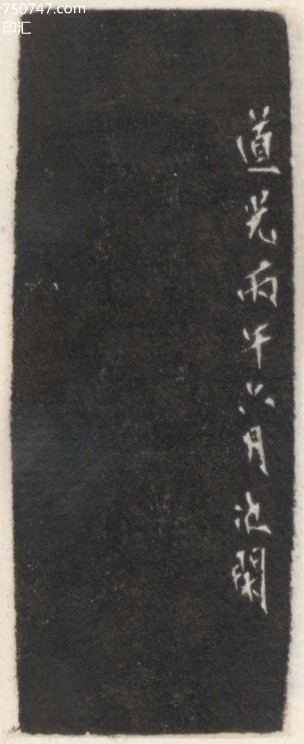 750747.com
印汇
道光丙午六月次閑